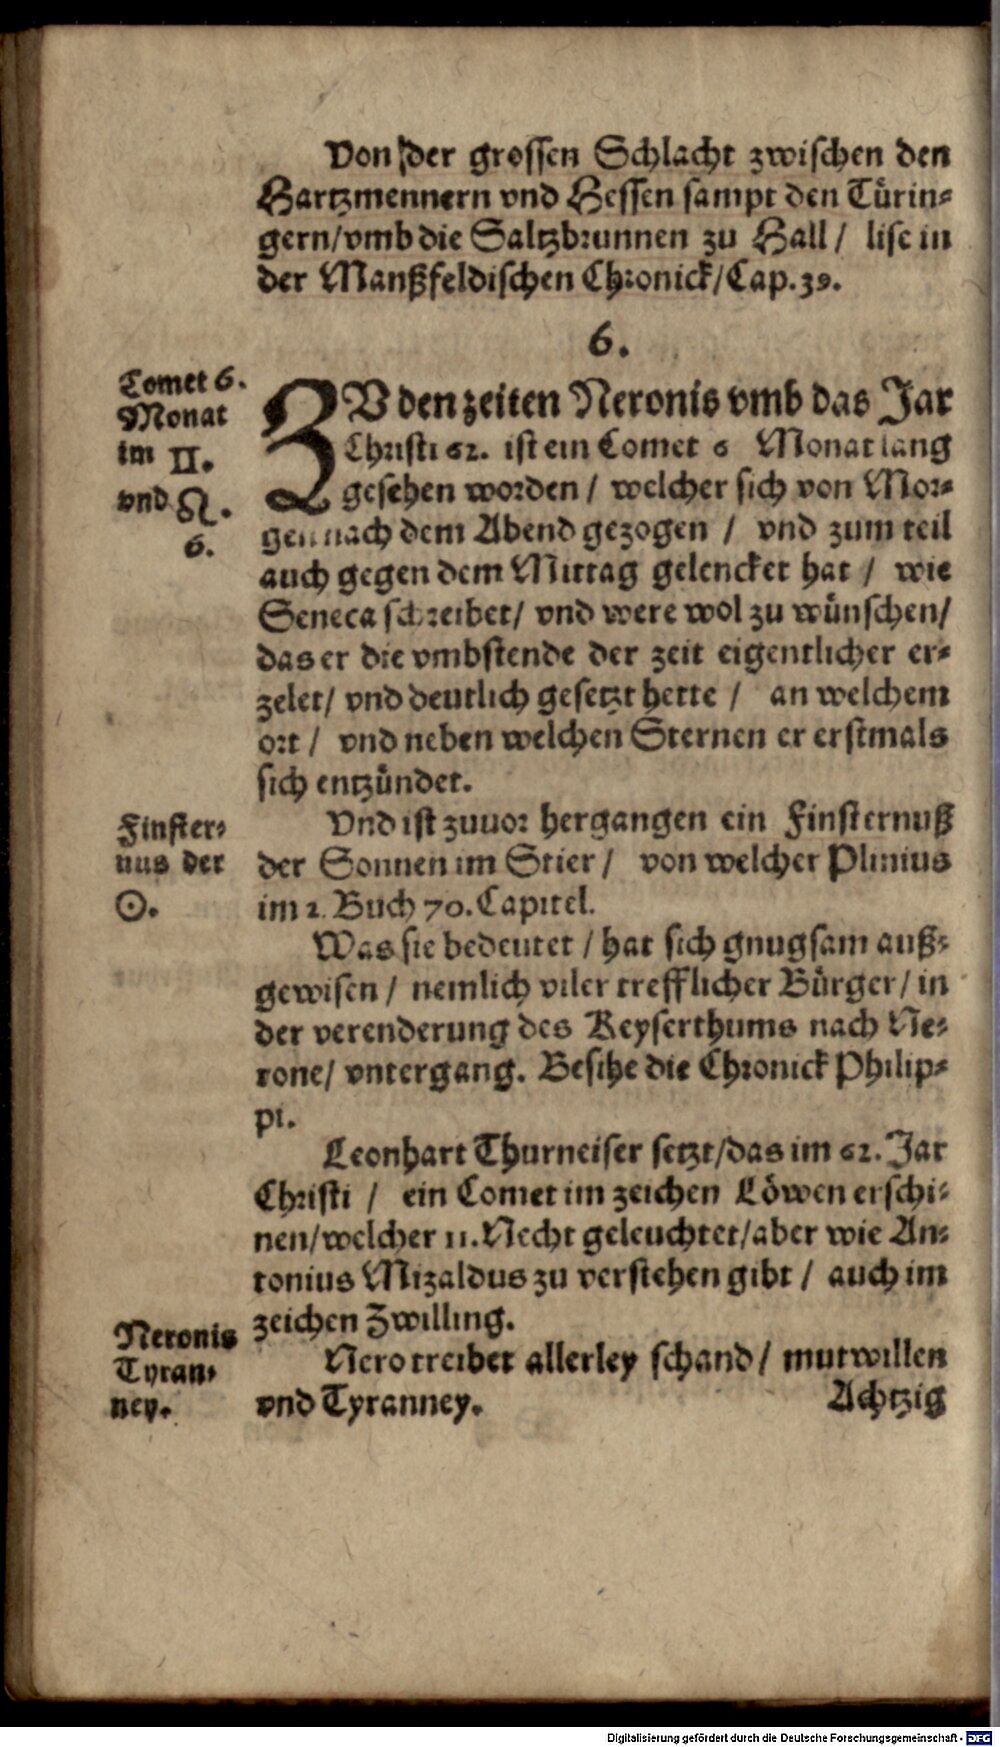 Von der grossen Schlacht zwischen den
Hartzmennern vnd Hessen sampt den Türin-
gern/vmb die Saltzbrunnen zu Hall/ lise in
der Manßfeldischen Chronick/Cap.39.
6.
Comet 6.
Monat
im ♊.
vnd ♌.
6.
ZV den zeiten Neronis vmb das Jar
Christi 62. ist ein Comet 6 Monat lang
gesehen worden/ welcher sich von Mor-
gen nach dem Abend gezogen / vnd zum teil
auch gegen dem Mittag gelencket hat / wie
Seneca schreibet/ vnd were wol zu wünschen/
das er die vmbstende der zeit eigentlicher er-
zelet/ vnd deutlich gesetzt hette / an welchem
ort / vnd neben welchen Sternen er erstmals
sich entzündet.
Finster-
nus der
☉.
Vnd ist zuuor hergangen ein Finsternuß
der Sonnen im Stier/ von welcher Plinius
im 2. Buch 70. Capitel.
Was sie bedeutet / hat sich gnugsam auß-
gewisen / nemlich viler trefflicher Bürger/ in
der verenderung des Keyserthums nach Ne-
rone/ vntergang. Besihe die Chronick Philip-
pi.
Leonhart Thurneiser setzt/das im 62. Jar
Christi / ein Comet im zeichen Löwen erschi-
nen/welcher 11. Necht geleuchtet/aber wie An-
tonius Mizaldus zu verstehen gibt / auch im
zeichen Zwilling.
Neronis
Tyran-
ney.
Nero treibet allerley schand/ mutwillen
vnd Tyranney.
Achtzig
Digitalisierung gefördert durch die Deutsche Forschungsgemeinschaft - DFG